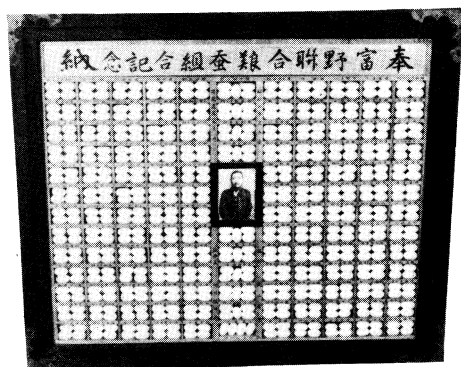 奉富野聯合蚕組合記念納